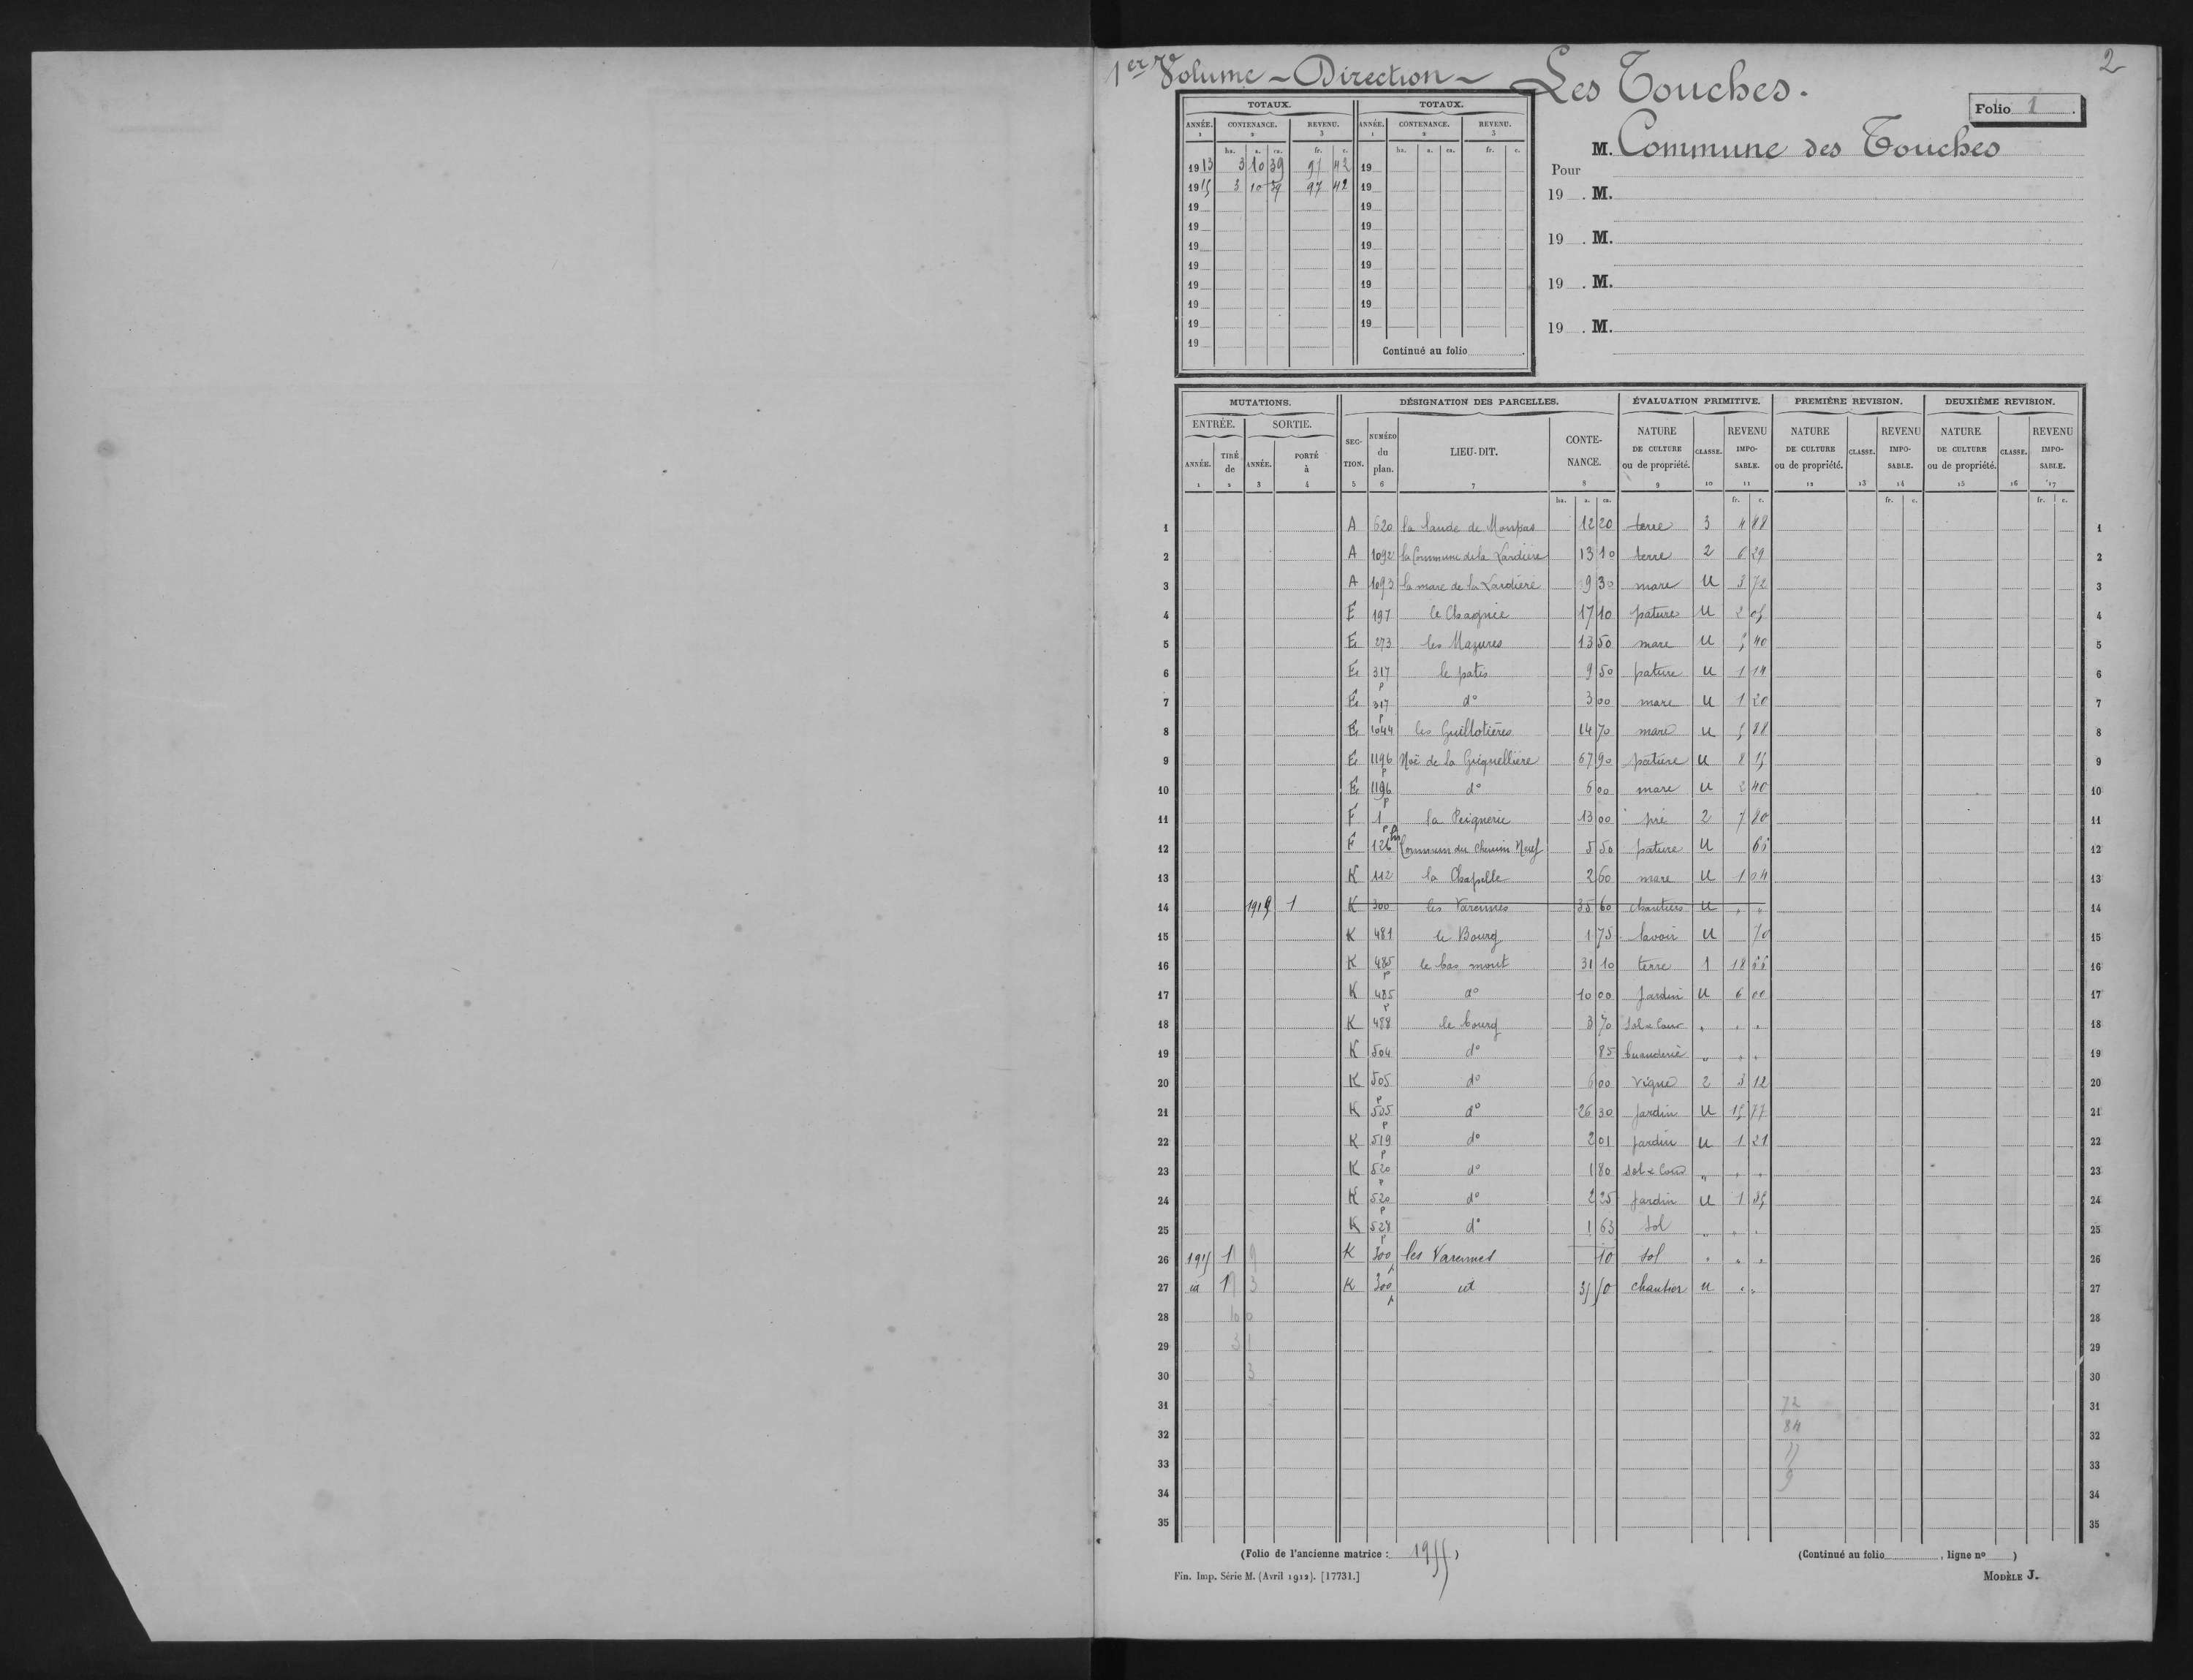 1er Volume - Direction - Les Touches.
2
Folio 1.
M. Commune des Touches
Pour
19 . M.
19 . M.
19 . M.
19 . M.
TOTAUX. TOTAUX.
ANNÉE. CONTENANCE. REVENU. ANNÉE. CONTENANCE. REVENU.
1 2 3 1 2 3
ha. a. ca. fr. c. ha. a. ca. fr. c.
1913 3 10 39 97 42 19
1915 3 10 39 97 42 19
19 19
19 19
19 19
19 19
19 19
19 19
19 19
19 Continué au folio .
MUTATIONS. DÉSIGNATION DES PARCELLES. ÉVALUATION PRIMITIVE. PREMIÈRE REVISION. DEUXIÈME REVISION.
ENTRÉE. SORTIE. SECTION. NUMÉRO du plan. LIEU-DIT. CONTENANCE. NATURE DE CULTURE ou de propriété. CLASSE. REVENU IMPOSABLE. NATURE DE CULTURE ou de propriété. CLASSE. REVENU IMPOSABLE. NATURE DE CULTURE ou de propriété. CLASSE. REVENU IMPOSABLE.
ANNÉE. TIRÉ de ANNÉE. PORTÉ à
1 2 3 4 5 6 7 8 9 10 11 12 13 14 15 16 17
ha. a. ca. fr. c. fr. c. fr. c.
1 A 620 la lande de Monpas 12 20 terre 3 4 88 1
2 A 1092 la Commune de la Lardière 13 10 terre 2 6 29 2
3 A 1093 la mare de la Lardière 9 30 mare U 3 72 3
4 E 197 le Chagnie 17 10 pature U 2 05 4
5 E 273 les Mazures 13 50 mare U 5 40 5
6 E 317 p le patis 9 50 pature U 1 14 6
7 E 317 p d° 3 00 mare U 1 20 7
8 E 1044 les Guillotières 14 70 mare U 5 88 8
9 E 1196 p Noë de la Griquellière 67 90 pature U 8 15 9
10 E 1196 p d° 6 00 mare U 2 40 10
11 F 1 p la Peignerie 13 00 pré 2 7 80 11
12 F 126 bis Commun du Chemin Neuf 5 50 pature U 66 12
13 K 112 la Chapelle 2 60 mare U 1 04 13
14 1919 1 K 300 les Varennes 35 60 chantiers U " " 14
15 K 481 le Bourg 1 75 lavoir U 70 15
16 K 485 p le bas mont 31 10 terre 1 18 66 16
17 K 485 p d° 10 00 Jardin U 6 00 17
18 K 488 le bourg 3 70 Sol & Cour " " " 18
19 K 504 d° 85 buanderie " " " 19
20 K 505 p d° 6 00 vigne 2 3 12 20
21 K 505 p d° 26 30 jardin U 15 77 21
22 K 519 p d° 2 01 jardin U 1 21 22
23 K 520 p d° 1 80 Sol & Cour " " " 23
24 K 520 p d° 2 25 Jardin U 1 35 24
25 K 528 p d° 1 63 Sol " " " 25
26 1915 1 K 300 p les Varennes 10 sol " " " 26
27 id 1 K 300 p id 35 50 chantier U " " 27
28 28
29 29
30 30
31 72 31
32 84 32
33 33
34 9 34
35 35
(Folio de l'ancienne matrice : 1955) (Continué au folio , ligne n° )
Fin. Imp. Série M. (Avril 1912). [17731.] MODÈLE J.